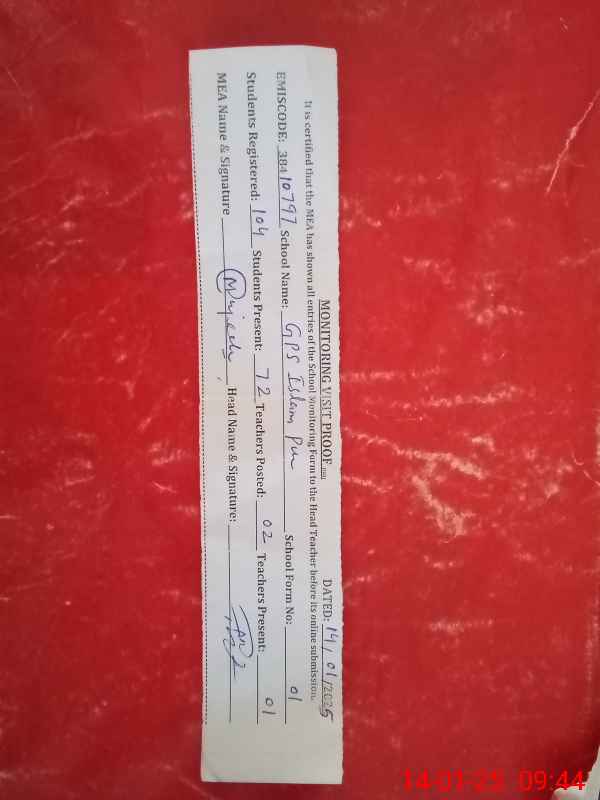 MONITORING VISIT PROOF DATED: 14/01/2025
It is certified that the MEA has shown all entries of the School Monitoring Form to the Head Teacher before its online submission.
EMISCODE: 38410797 School Name: GPS Islam Pur School Form No: 01
Students Registered: 104 Students Present: 72 Teachers Posted: 02 Teachers Present: 01
MEA Name & Signature Mujeeb Head Name & Signature:
14-01-25 09:44